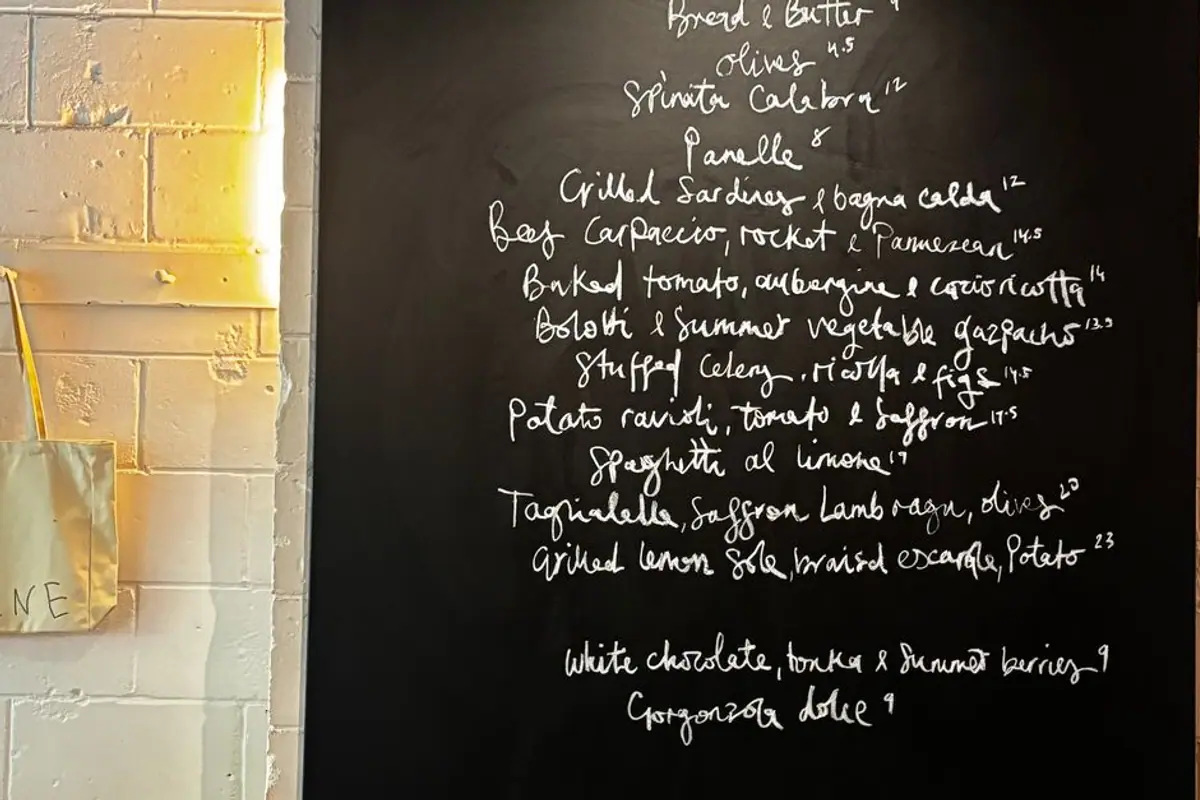 Bread & Butter
olives 4.5
Spinata Calabra 12
Panelle 8
Grilled Sardines & bagna calda 12
Beef Carpaccio, rocket & Parmesean 14.5
Baked tomato, aubergine & cacioricotta 14
Bolotti & Summer vegetable gazpacho 13.5
Stuffed Celery, ricotta & figs 14.5
Potato ravioli, tomato & Saffron 17.5
Spaghetti al limone
Tagliatelle, Saffron Lamb ragu, olives 20
Grilled lemon Sole, braised escarole, Potato 23
White chocolate, tonka & Summer berries 9
Gorgonzola dolce 9
NE